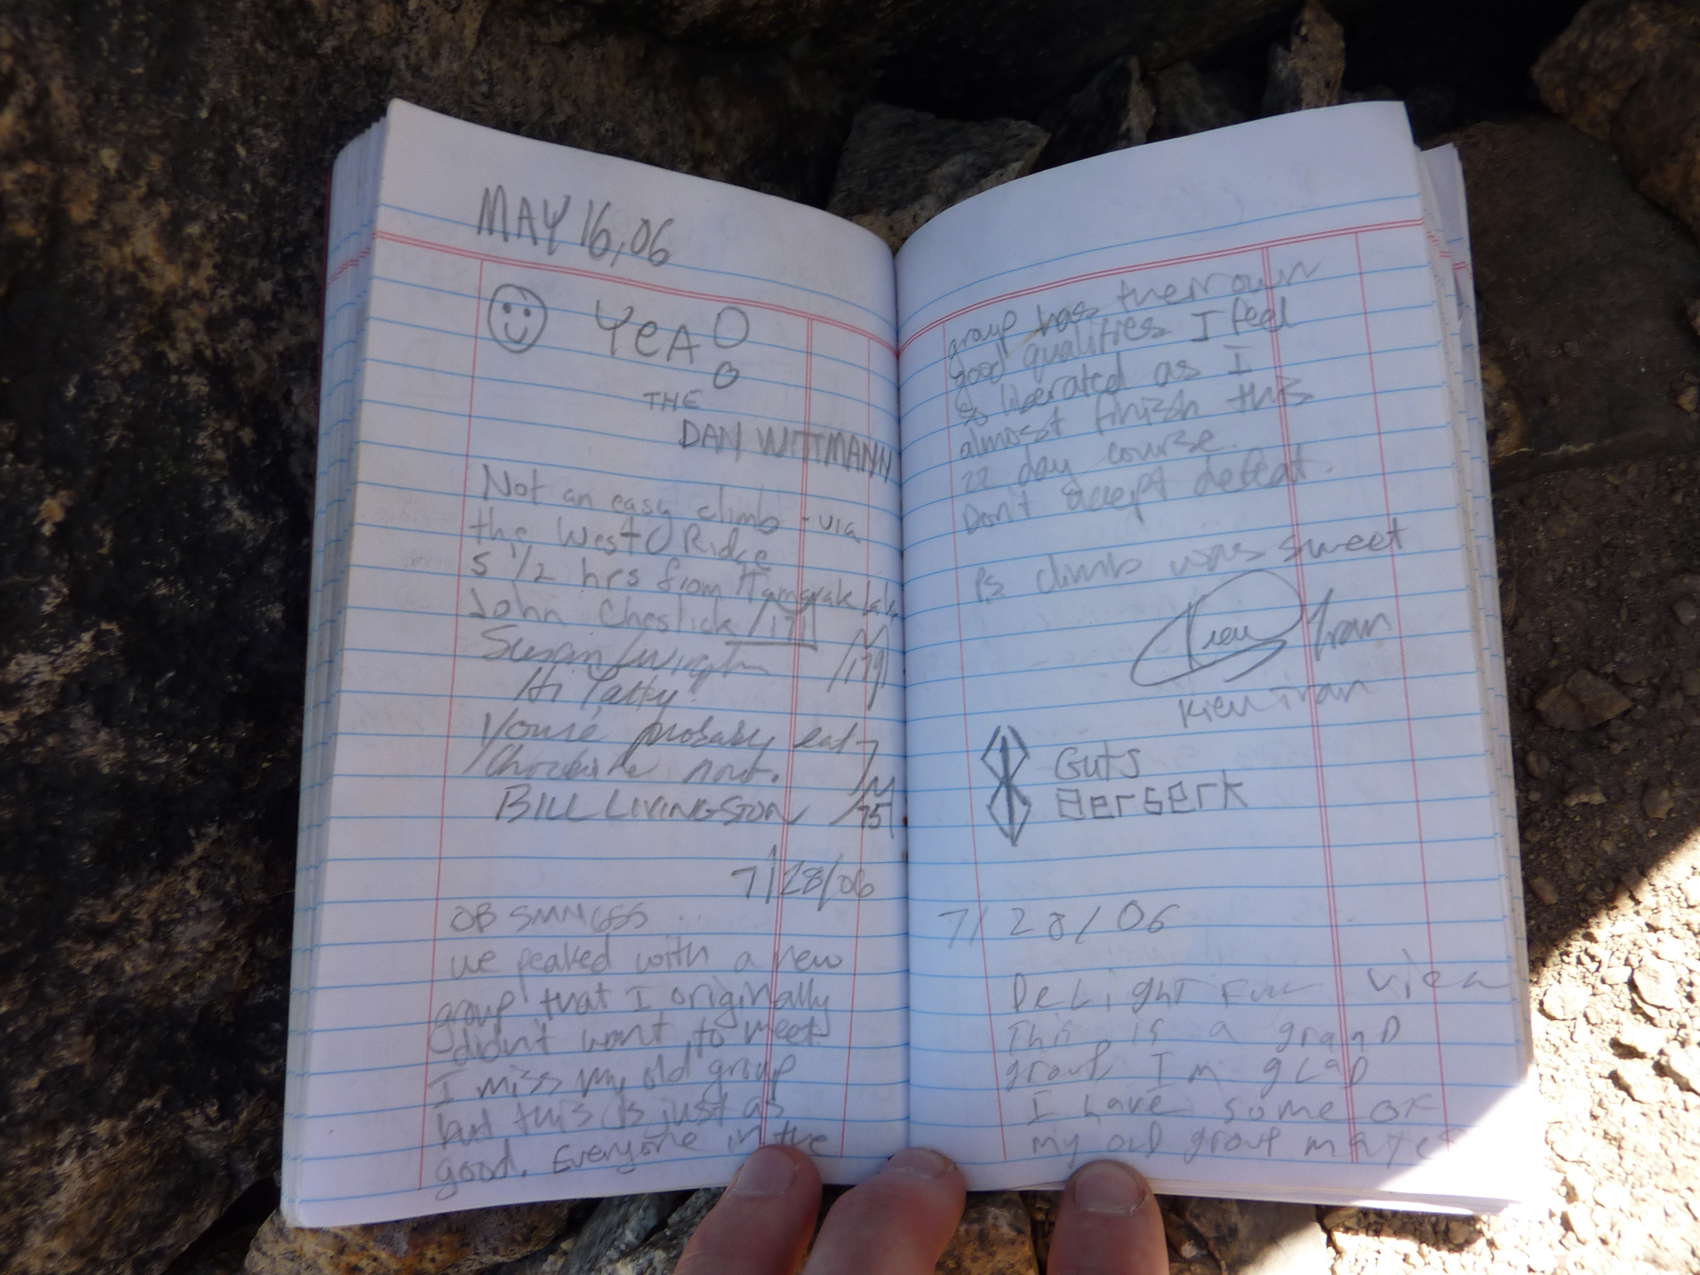 MAY 16, 06
YeA
THE
DAN WITTMANN
Not an easy climb - via
the West Ridge
5 1/2 hrs from lake
John
Susan
Hi Patty!
You're probaby eat
Chocolate now.
BILL LIVINGSTON
7/28/06
OB
we peaked with a new
group that I originally
didn't want to meet
I miss my old group
but this is just as
good. Everyone in the
group has their own
good qualities I feel
so liberated as I
almost finish this
22 day course.
Don't accept defeat.
Ps climb was sweet
Kien Tran
Kien Tran
Guts
Berserk
7/28/06
DeLightFull view
This is a granD
group I'm glaD
I have some OF
my old group mates